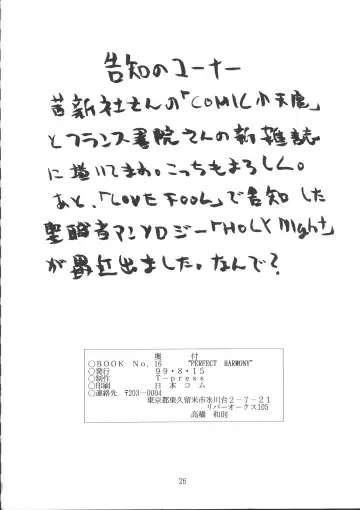 告知のコーナー
茜新社さんの「COMIC小天使」
とフランス書院さんの新雑誌
に描いてまわ。こっちもよろしく。
あと、「LOVE FOOL」で告知した
聖職者アンソロジー「HOLY Night」
が異辺出ました。なんで?
奥　付
○BOOK No. 16 "PERFECT HARMONY"
○発行 99・8・15
○制作 T-press
○印刷 日本コム
○連絡先 〒203-0004
東京都東久留米市氷川台2-7-21
リバーオークス105
高橋 和則
26